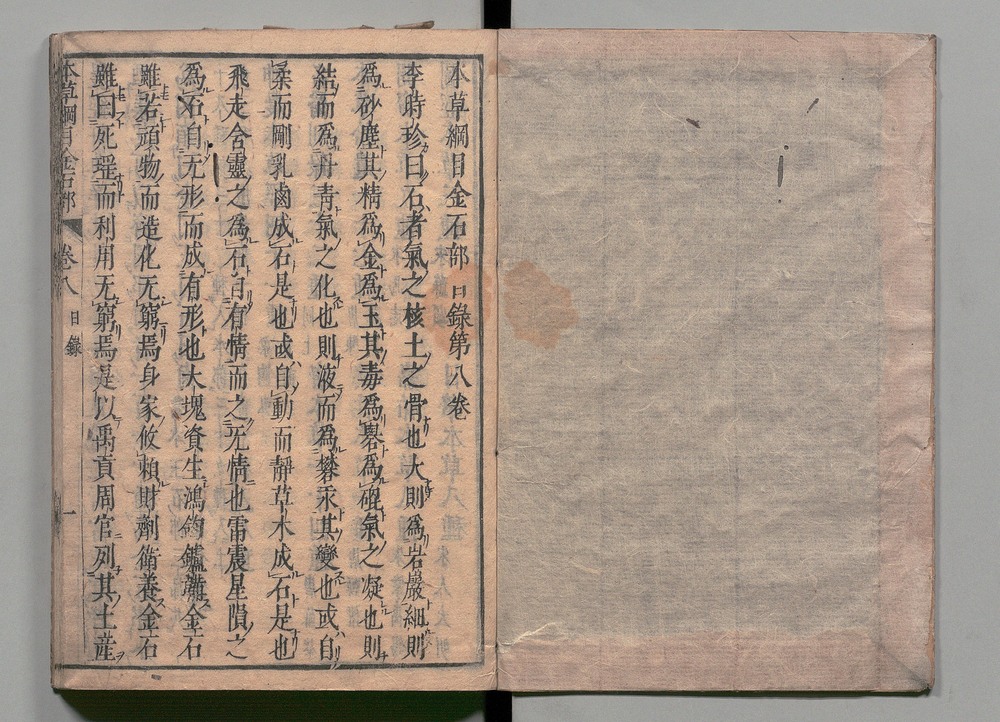 本草綱目金石部目錄第八卷
李時珍曰石者氣之核土之骨也大則爲岩巖細則
爲砂塵其精爲金爲玉其毒爲礜爲砒氣之凝也則
結而爲丹靑氣之化也則液而爲礬汞其變也或自
柔而剛乳鹵成石是也或自動而靜草木成石是也
飛走含靈之爲石自有情而之无情也雷震星隕之
爲石自无形而成有形也大塊資生鴻鈞鑪鞴金石
雖若頑物而造化无窮焉身家攸賴財劑衛養金石
雖曰死瑤而利用无窮焉是以禹貢周官列其土產
本草綱目金石部 卷八 目錄 一